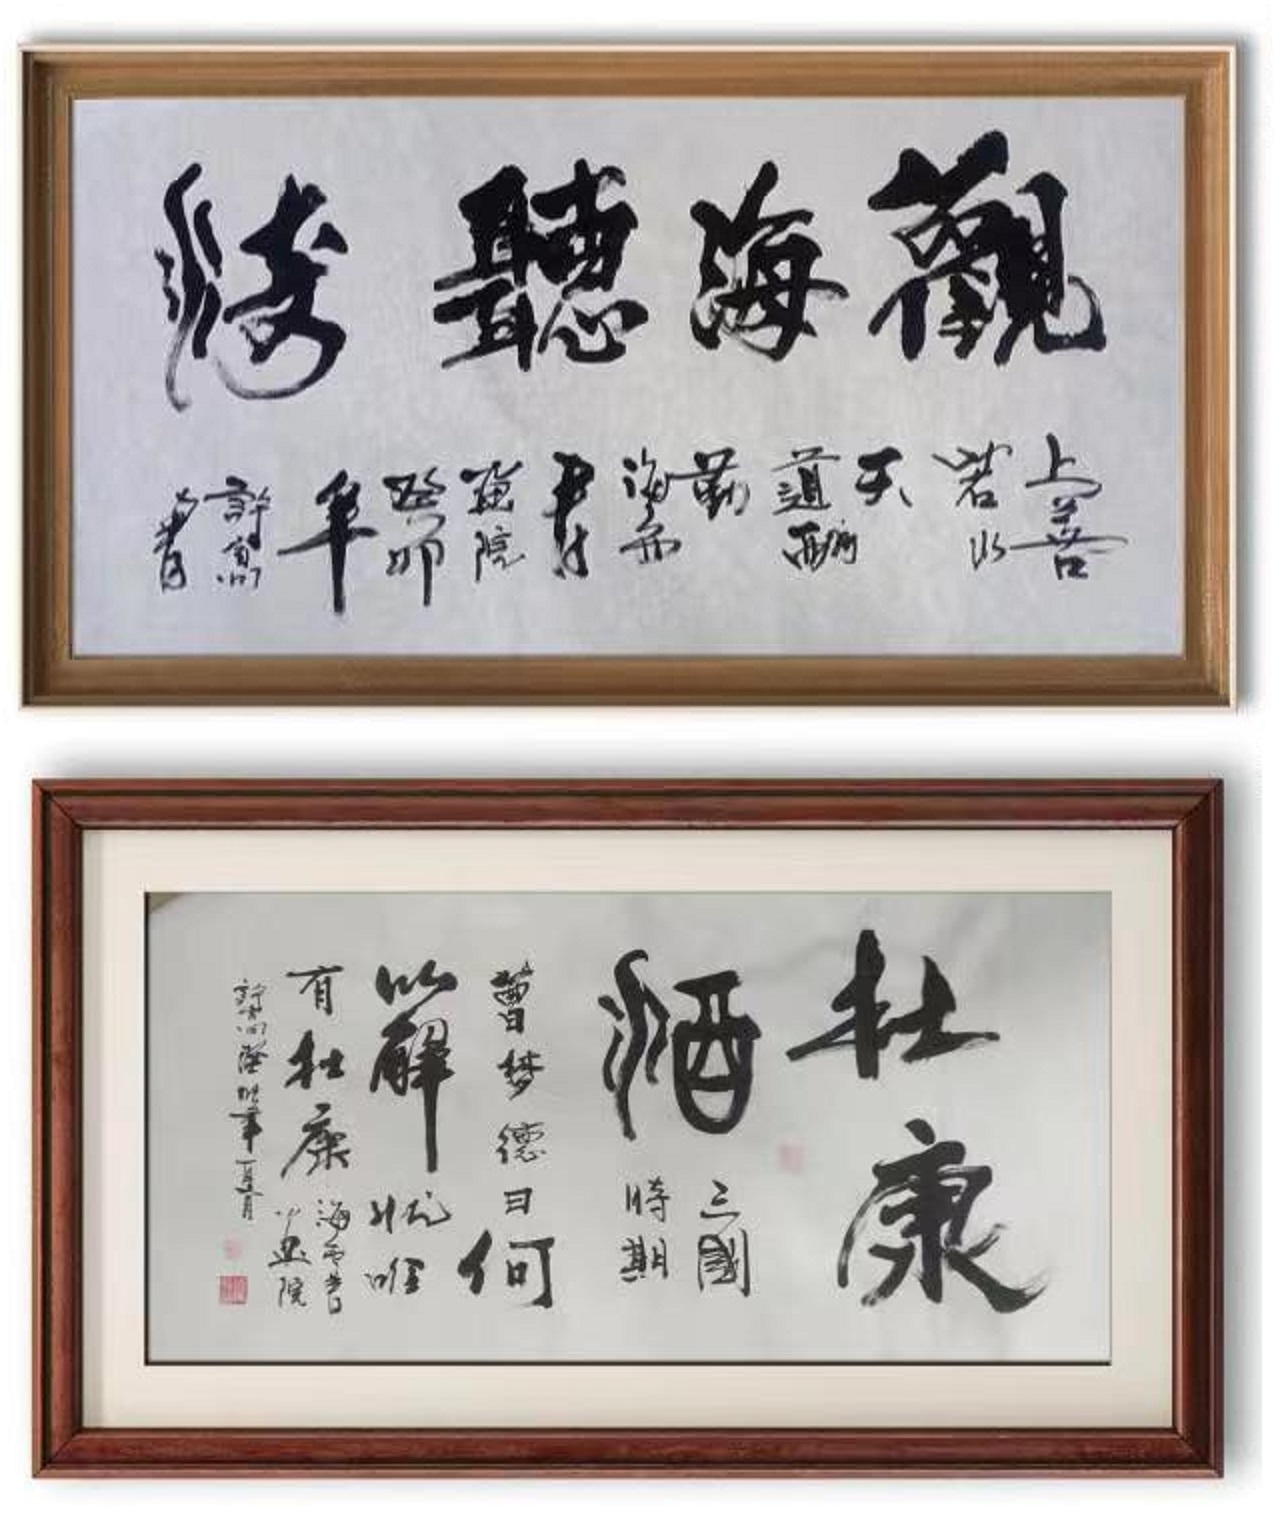 觀海聽濤
上善
若水
天
道酬
勤
海雲
書
畫院
癸卯
年
許
杜康
酒
三國
時期
曹梦德曰何
以解忧唯
有杜康
海雲書
画院
許癸卯年夏月